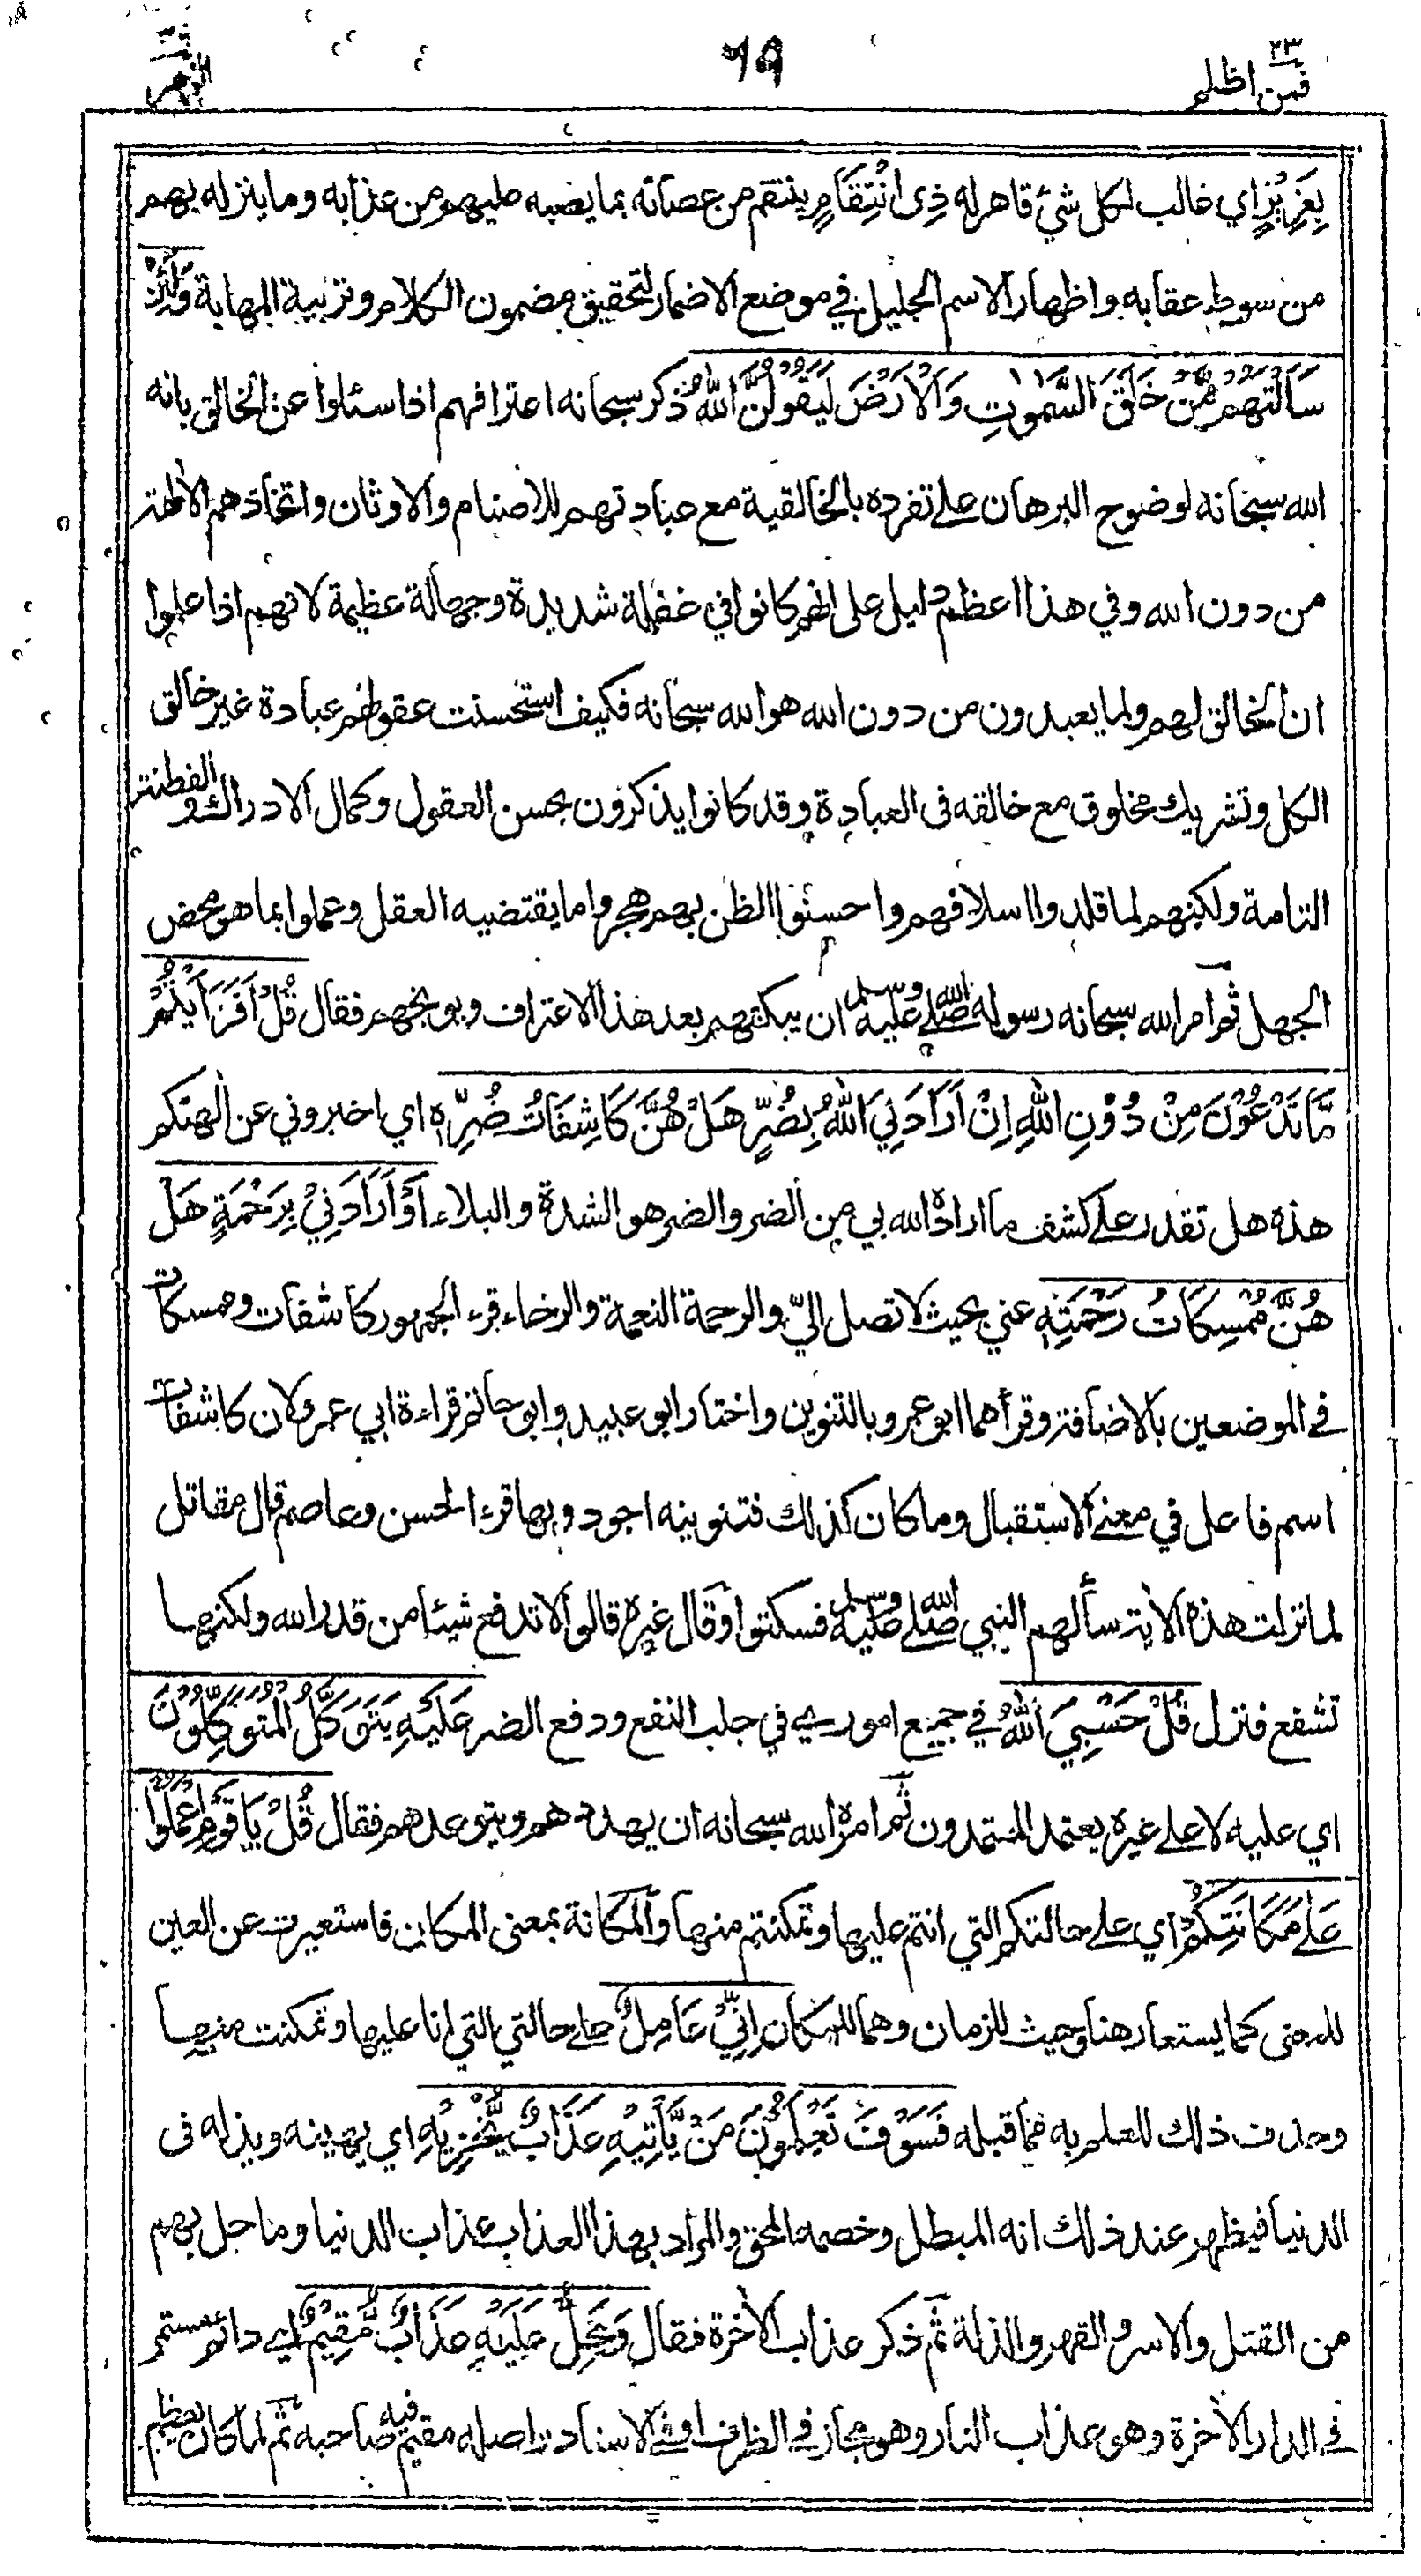 ٢٣
فمن اظلم
٦٩
الزمر
بِعَزِيْزٍ اي غالب لكل شيء قاهر له ذِى انْتِقَامٍ ينتقم من عصاته بما يصبه عليهم من عذابه وما ينزله بهم
من سوط عقابه واظهار الاسم الجليل في موضع الاضمار لتحقيق مضمون الكلام وتربية المهابة وَلَئِنْ
سَاَلْتَهُمْ مَّنْ خَلَقَ السَّمٰوٰتِ وَالْاَرْضَ لَيَقُوْلُنَّ اللّٰهُ ذكر سبحانه اعترافهم اذا سئلوا عن الخالق بانه
الله سبحانه لوضوح البرهان على تفرده بالخالقية مع عبادتهم للاصنام والاوثان واتخاذهم الالهة
من دون الله وفي هذا اعظم دليل على انهم كانوا في غفلة شديدة وجهالة عظيمة لانهم اذا علموا
ان الخالق لهم ولما يعبدون من دون الله هو الله سبحانه فكيف استحسنت عقولهم عبادة غير خالق
الكل وتشريك مخلوق مع خالقه في العبادة وقد كانوا يذكرون بحسن العقول وكمال الادراك والفطنة
التامة ولكنهم لما قلدوا اسلافهم واحسنوا الظن بهم هجروا ما يقتضيه العقل وعملوا بما هو محض
الجهل ثم امر الله سبحانه رسوله صلى الله عليه وسلم ان يبكتهم بعد هذا الاعتراف ويوبخهم فقال قُلْ اَفَرَاَيْتُمْ
مَّا تَدْعُوْنَ مِنْ دُوْنِ اللّٰهِ اِنْ اَرَادَنِيَ اللّٰهُ بِضُرٍّ هَلْ هُنَّ كَاشِفَاتُ ضُرِّهِ اي اخبروني عن الهتكم
هذه هل تقدر على كشف ما اراده الله بي من الضر والضر هو الشدة والبلاء اَوْ اَرَادَنِيْ بِرَحْمَةٍ هَلْ
هُنَّ مُمْسِكَاتُ رَحْمَتِهِ عني بحيث لا تصل اليّ والرحمة النعمة والرخاء قرء الجمهور كاشفات وممسكات
في الموضعين بالاضافة وقرأهما ابو عمرو بالتنوين واختار ابو عبيد وابو حاتم قراءة ابي عمرو لان كاشفات
اسم فاعل في معنى الاستقبال وما كان كذلك فتنوينه اجود وبها قرء الحسن وعاصم قال مقاتل
لما نزلت هذه الاية سألهم النبي صلى الله عليه وسلم فسكتوا وقال غيره قالوا لا تدفع شيئا من قدر الله ولكنها
تشفع فنزل قُلْ حَسْبِيَ اللّٰهُ في جميع اموري في جلب النفع ودفع الضر عَلَيْهِ يَتَوَكَّلُ الْمُتَوَكِّلُوْنَ
اي عليه لا على غيره يعتمد المعتمدون ثم امره الله سبحانه ان يهددهم ويتوعدهم فقال قُلْ يَا قَوْمِ اعْمَلُوْا
عَلٰى مَكَانَتِكُمْ اي على حالتكم التي انتم عليها وتمكنتم منها والمكانة بمعنى المكان فاستعيرت عن العين
للمعنى كما يستعار هنا وحيث للزمان وهما للمكان اِنِّيْ عَامِلٌ على حالتي التي انا عليها وتمكنت منها
وحذف ذلك للعلم به مما قبله فَسَوْفَ تَعْلَمُوْنَ مَنْ يَّأْتِيْهِ عَذَابٌ يُّخْزِيْهِ اي يهينه ويذله في
الدنيا فيظهر عند ذلك انه المبطل وخصمه المحق والمراد بهذا العذاب عذاب الدنيا وما حل بهم
من القتل والاسر والقهر والذلة ثم ذكر عذاب الاخرة فقال وَيَحِلُّ عَلَيْهِ عَذَابٌ مُّقِيْمٌ اي دائم مستمر
في الدار الاخرة وهو عذاب النار وهو مجاز في الظرف او في الاسناد اصله مقيم فيه صاحبه ثم لما كان يعظم